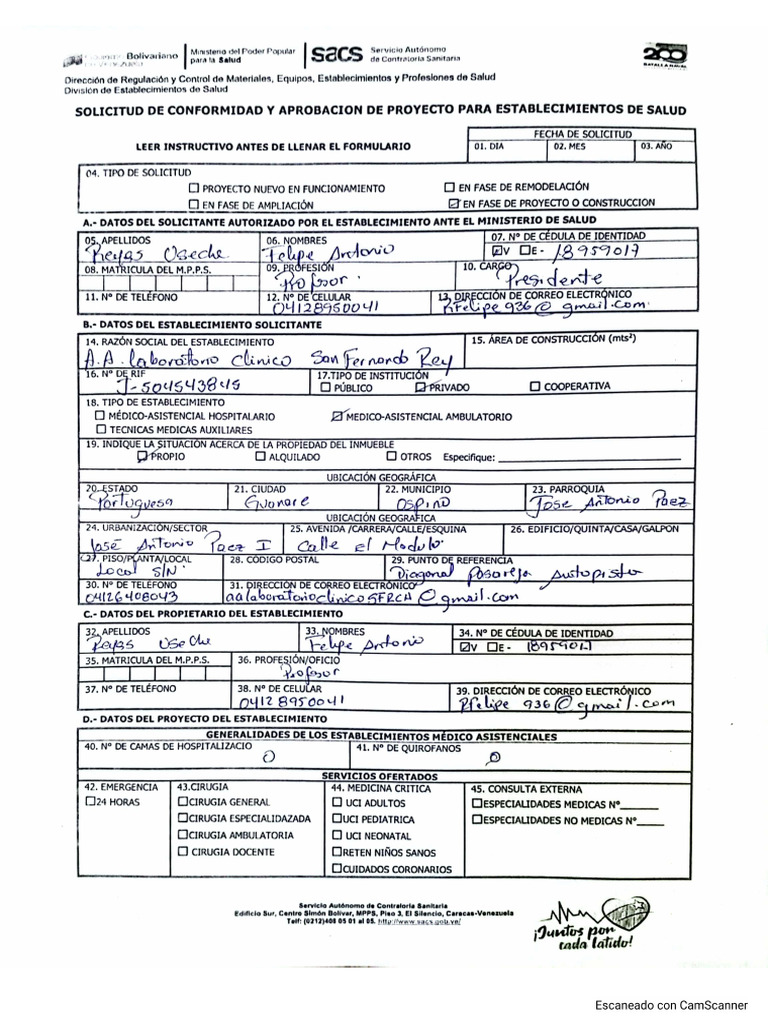 Bolivariano
Ministerio del Poder Popular
para la Salud
sacs
Servicio Autónomo
de Contraloria Sanitaria
200
Dirección de Regulación y Control de Materiales, Equipos, Establecimientos y Profesiones de Salud
División de Establecimientos de Salud
SOLICITUD DE CONFORMIDAD Y APROBACION DE PROYECTO PARA ESTABLECIMIENTOS DE SALUD
LEER INSTRUCTIVO ANTES DE LLENAR EL FORMULARIO
FECHA DE SOLICITUD
01. DIA 02. MES 03. AÑO
04. TIPO DE SOLICITUD
PROYECTO NUEVO EN FUNCIONAMIENTO EN FASE DE REMODELACIÓN
EN FASE DE AMPLIACIÓN EN FASE DE PROYECTO O CONSTRUCCION
A.- DATOS DEL SOLICITANTE AUTORIZADO POR EL ESTABLECIMIENTO ANTE EL MINISTERIO DE SALUD
05. APELLIDOS 06. NOMBRES 07. Nº DE CÉDULA DE IDENTIDAD
Reyas Useche Felipe Antonio V E- 18959017
08. MATRICULA DEL M.P.P.S. 09. PROFESIÓN 10. CARGO
Profesor Presidente
11. Nº DE TELÉFONO 12. Nº DE CELULAR 13. DIRECCIÓN DE CORREO ELECTRÓNICO
04128950041 Rfelipe936@gmail.com
B.- DATOS DEL ESTABLECIMIENTO SOLICITANTE
14. RAZÓN SOCIAL DEL ESTABLECIMIENTO 15. ÁREA DE CONSTRUCCIÓN (mts²)
A.A. laboratorio Clinico San Fernando Rey
16. Nº DE RIF 17.TIPO DE INSTITUCIÓN
J-504543845 PÚBLICO PRIVADO COOPERATIVA
18. TIPO DE ESTABLECIMIENTO
MÉDICO-ASISTENCIAL HOSPITALARIO MEDICO-ASISTENCIAL AMBULATORIO
TECNICAS MEDICAS AUXILIARES
19. INDIQUE LA SITUACIÓN ACERCA DE LA PROPIEDAD DEL INMUEBLE
PROPIO ALQUILADO OTROS Especifique:
UBICACIÓN GEOGRÁFICA
20. ESTADO 21. CIUDAD 22. MUNICIPIO 23. PARROQUIA
Portuguesa Guanare Ospino Jose Antonio Paez
UBICACIÓN GEOGRAFICA
24. URBANIZACIÓN/SECTOR 25. AVENIDA /CARRERA/CALLE/ESQUINA 26. EDIFICIO/QUINTA/CASA/GALPON
José Antonio Paez I Calle el Modulo
27. PISO/PLANTA/LOCAL 28. CÓDIGO POSTAL 29. PUNTO DE REFERENCIA
Local S/N Diagonal Autopista
30. Nº DE TELÉFONO 31. DIRECCIÓN DE CORREO ELECTRÓNICO
04126408043 aalaboratorioclinicoSFRCA@gmail.com
C.- DATOS DEL PROPIETARIO DEL ESTABLECIMIENTO
32. APELLIDOS 33. NOMBRES 34. Nº DE CÉDULA DE IDENTIDAD
Reyas Useche Felipe Antonio V E- 18959017
35. MATRICULA DEL M.P.P.S. 36. PROFESIÓN/OFICIO
Profesor
37. Nº DE TELÉFONO 38. Nº DE CELULAR 39. DIRECCIÓN DE CORREO ELECTRÓNICO
04128950041 Rfelipe 936@gmail.com
D.- DATOS DEL PROYECTO DEL ESTABLECIMIENTO
GENERALIDADES DE LOS ESTABLECIMIENTOS MÉDICO ASISTENCIALES
40. Nº DE CAMAS DE HOSPITALIZACIO 41. Nº DE QUIROFANOS
0 0
SERVICIOS OFERTADOS
42. EMERGENCIA 43.CIRUGIA 44. MEDICINA CRITICA 45. CONSULTA EXTERNA
24 HORAS CIRUGIA GENERAL UCI ADULTOS ESPECIALIDADES MEDICAS Nº
CIRUGIA ESPECIALIDAZADA UCI PEDIATRICA ESPECIALIDADES NO MEDICAS Nº
CIRUGIA AMBULATORIA UCI NEONATAL
CIRUGIA DOCENTE RETEN NIÑOS SANOS
CUIDADOS CORONARIOS
Servicio Autónomo de Contraloria Sanitaria
Edificio Sur, Centro Simón Bolivar, MPPS, Piso 3, El Silencio, Caracas-Venezuela
Telf: (0212)408 05 01 al 05. http://www.sacs.gob.ve/
¡Juntos por
cada latido!
Escaneado con CamScanner